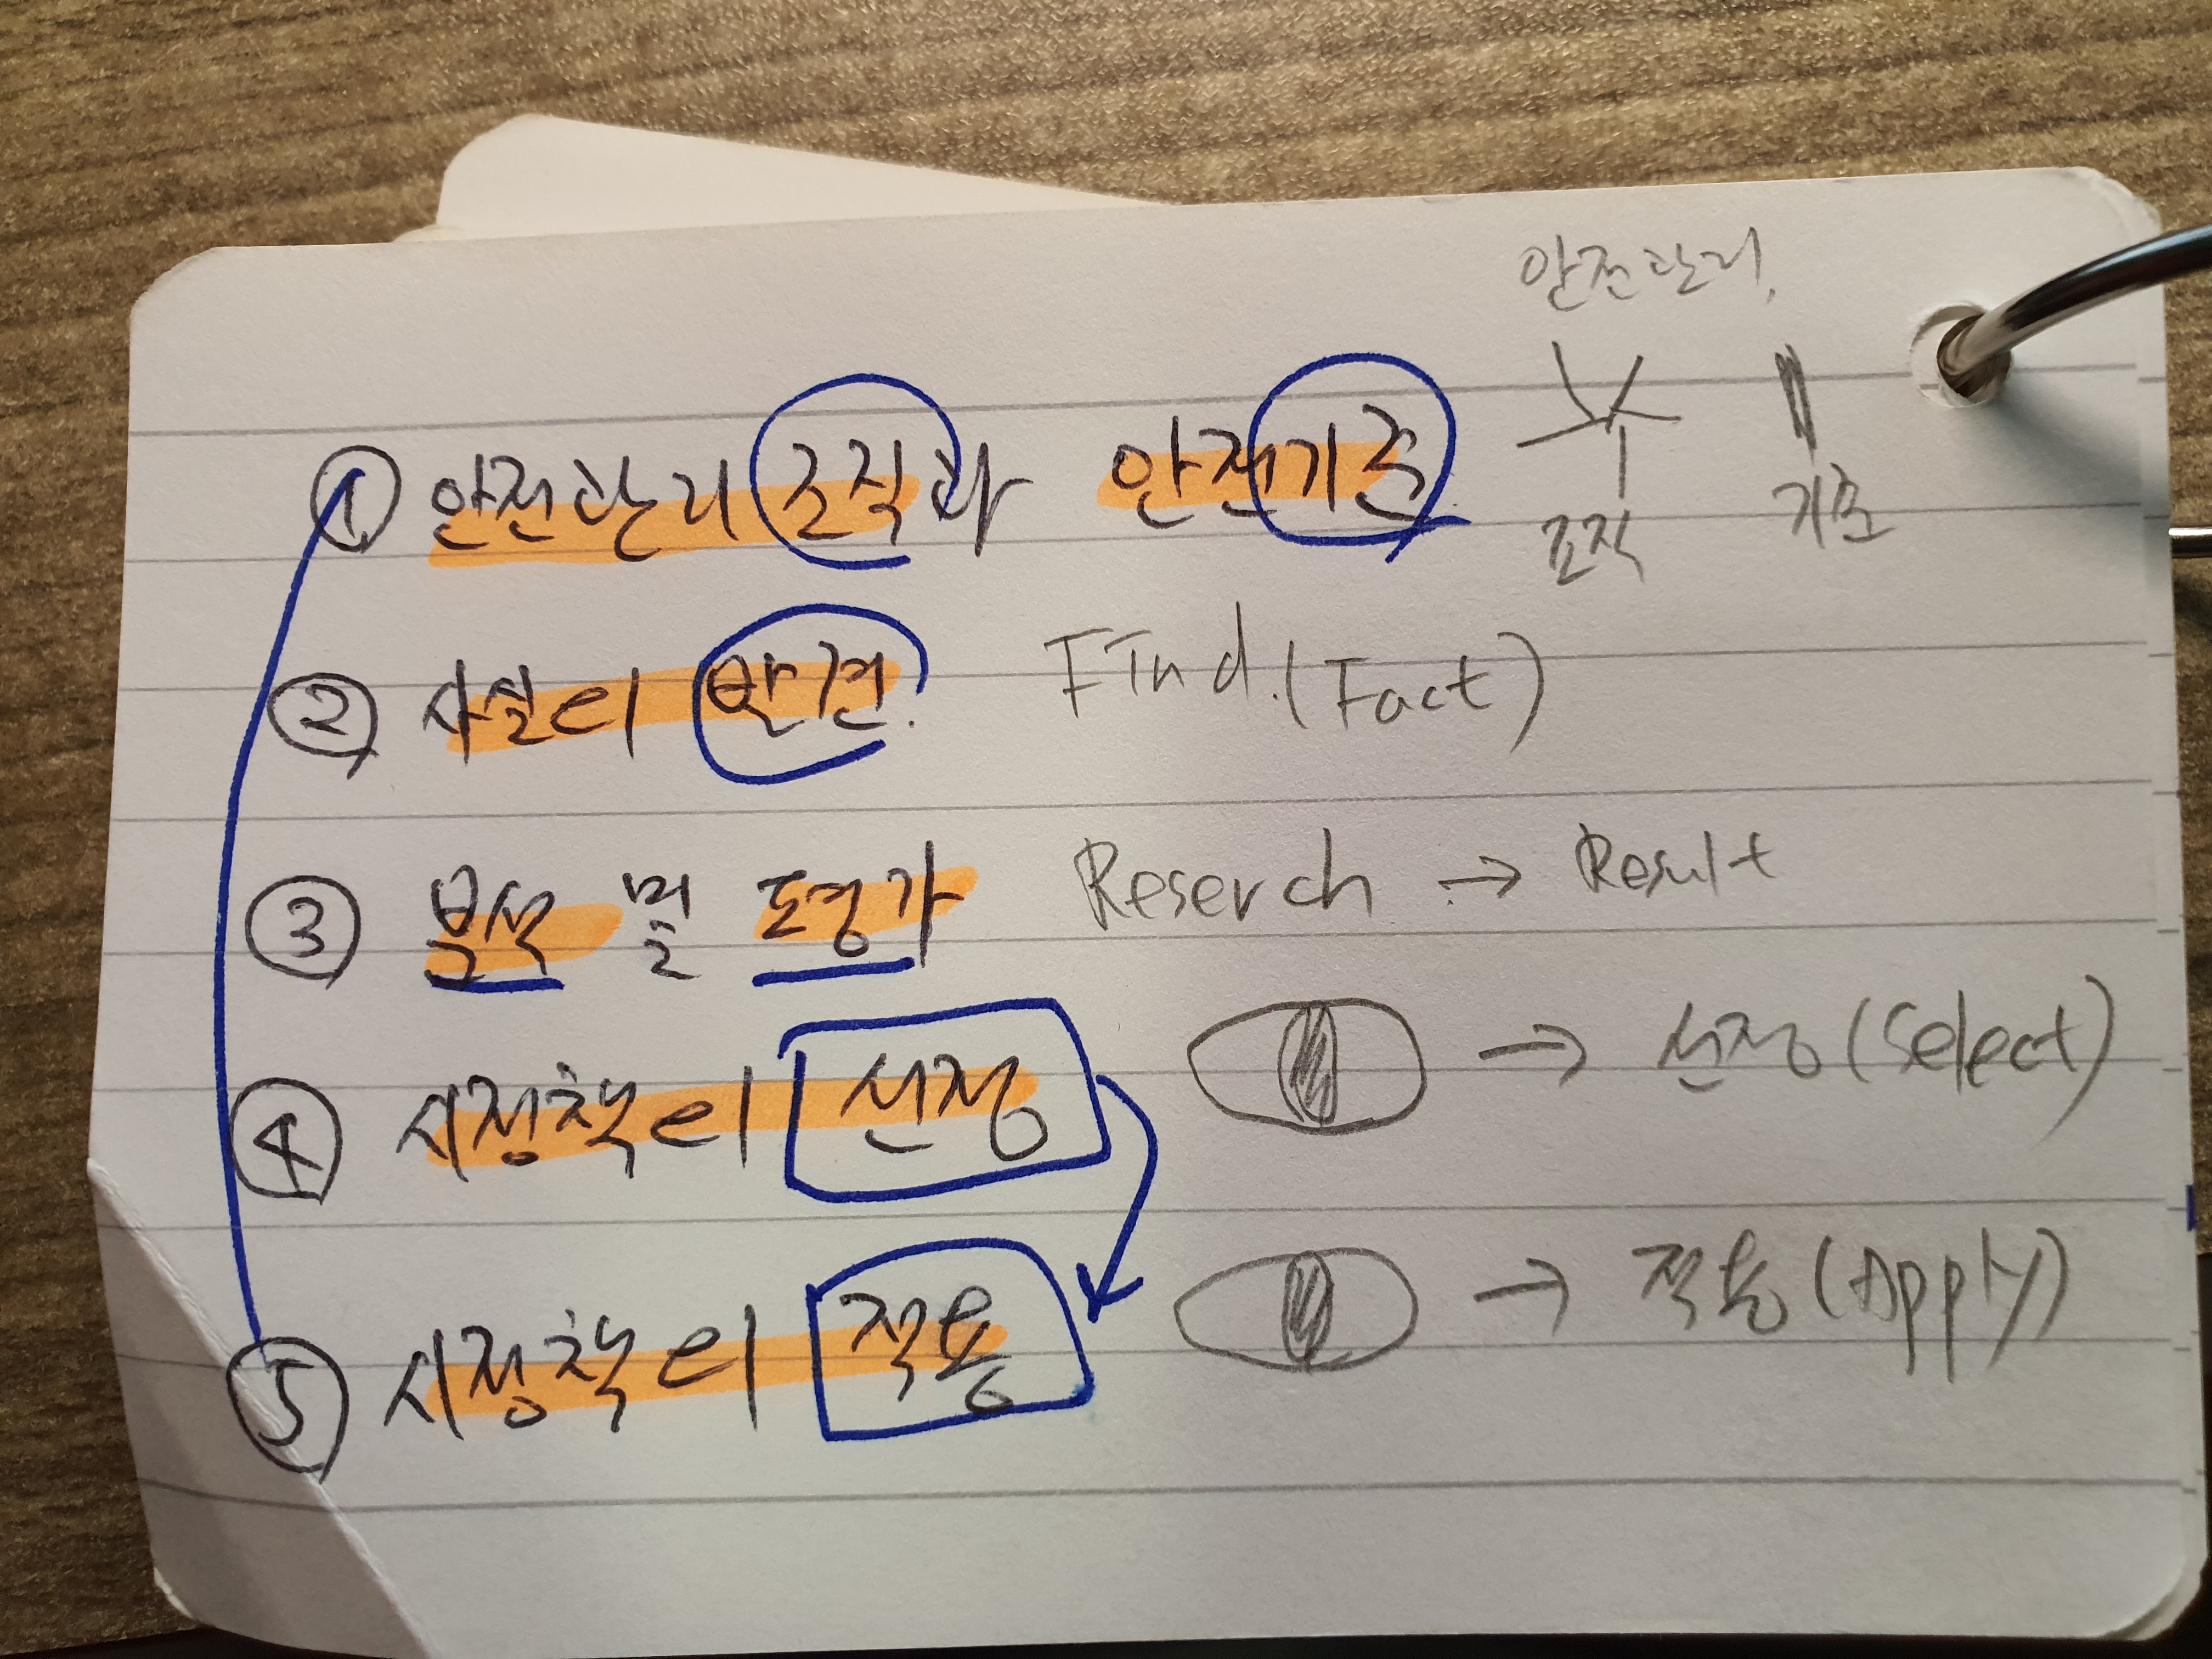 안전관리,
① 안전관리 조직과 안전기준.
조직 기준
② 사실의 발견. Find.(Fact)
③ 분석 및 평가 Reserch → Result
④ 시정책의 선정 → 선정(Select)
⑤ 시정책의 적용 → 적용(Apply)